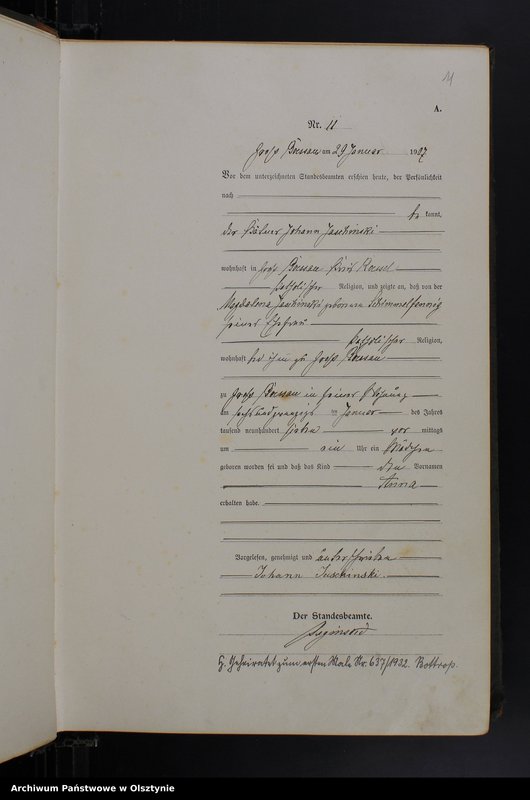 11
A.
Nr. 11
Groß Bößau am 29 Januar 1907
Vor dem unterzeichneten Standesbeamten erschien heute, der Persönlichkeit
nach
be kannt,
der Johann Jaschinski
wohnhaft in Groß Bößau Kreis Rössel
katholischer Religion, und zeigte an, daß von der
Magdalena Jaschinski geborene Schimmelfennig
seiner Ehefrau
katholischer Religion,
wohnhaft bei ihm zu Groß Bößau
zu Groß Bößau in seiner Wohnung
am sechsundzwanzigs ten Januar des Jahres
tausend neunhundert sieben vor mittags
um ein Uhr ein Mädchen
geboren worden sei und daß das Kind den Vornamen
Anna
erhalten habe.
Vorgelesen, genehmigt und unterschrieben
Johann Jaschinski
Der Standesbeamte.
H. Geheiratet zum ersten Male Nr. 637/1932. Bottrop.
Archiwum Państwowe w Olsztynie